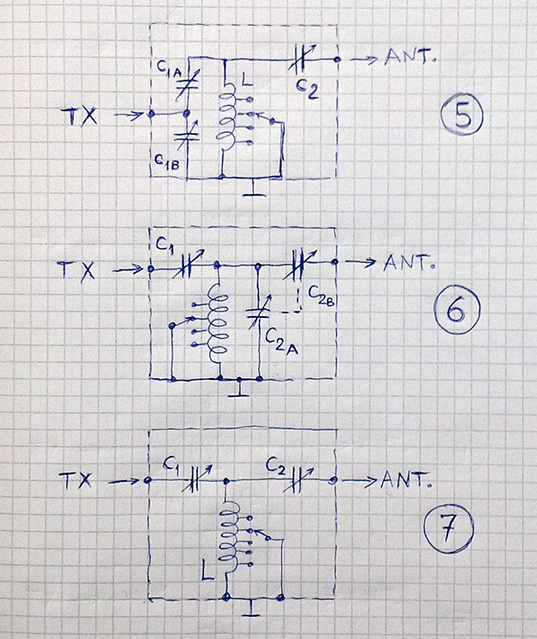 C1A
L
C2
ANT.
TX
C1B
5
C1
TX
ANT.
C2B
C2A
6
TX
C1
C2
ANT.
L
7